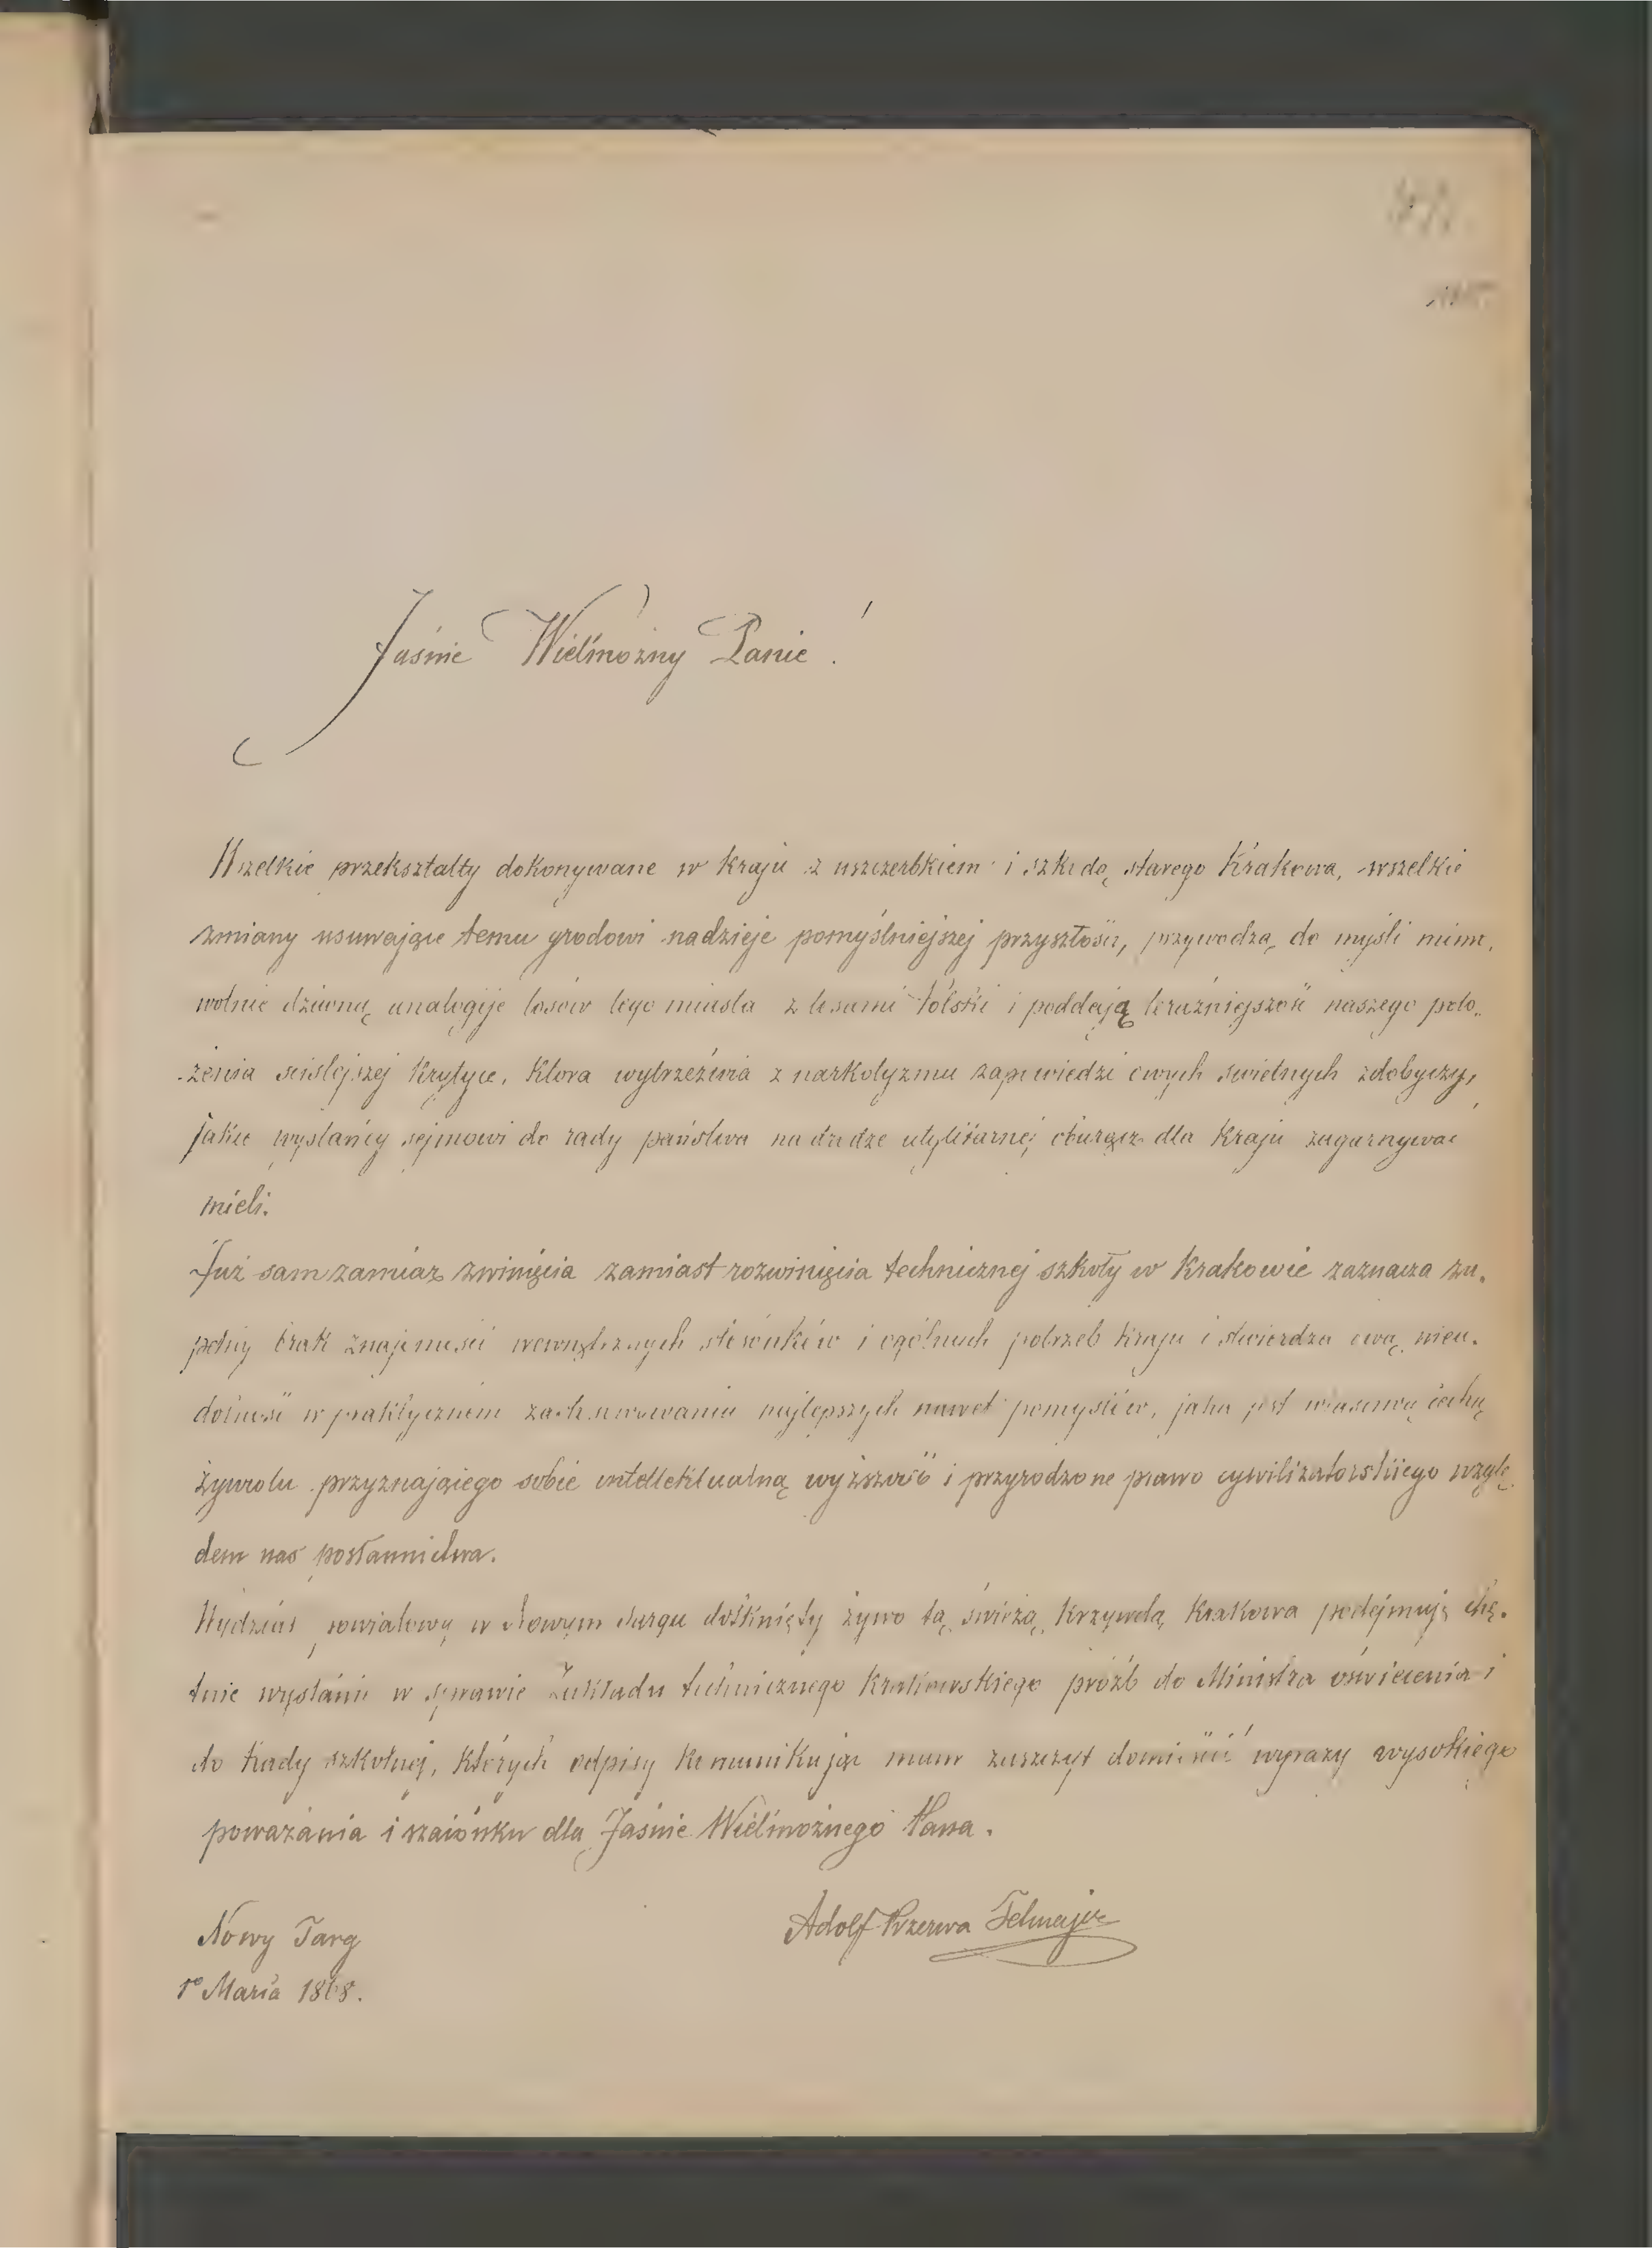 Jaśnie Wielmożny Panie!
Wszelkie przekształty dokonywane w kraju z uszczerbkiem i szkodą starego Krakowa, wszelkie
zmiany usuwające temu grodowi nadzieje pomyślniejszej przyszłości, przywodzą do myśli mimo-
wolnie dziwną analogije losów tego miasta z losami Polski i poddają teraźniejszość naszego poło-
-żenia ściślejszej krytyce, która wytrzeźwia z narkotyzmu zapowiedzi owych świetnych zdobyczy,
jakie wysłańcy sejmowi do rady państwa na drodze utylitarnej oburącz dla kraju zagarnywać
mieli.
Już sam zamiar zwinięcia zamiast rozwinięcia technicznej szkoły w Krakowie zaznacza zu-
pełny brak znajomości wewnętrznych stosunków i ogólnych potrzeb kraju i stwierdza ową nieu-
dolność w praktycznem zastosowaniu najlepszych nawet pomysłów, jaka jest właściwą cechą
żywiołu przyznającego sobie intellektualną wyższość i przyrodzone prawo cywilizatorskiego wzglę-
dem nas posłannictwa.
Wydział powiatowy w Nowym Targu dotknięty żywo tą świeżą krzywdą Krakowa podejmuję chę-
tnie wysłanie w sprawie Zakładu technicznego Krakowskiego próźb do Ministra oświecenia i
do Rady szkolnej, których odpisy komunikując mam zaszczyt domieścić wyrazy wysokiego
poważania i szacunku dla Jaśnie Wielmożnego Pana.
Adolf Przerwa Tetmajer
Nowy Targ
1º Marca 1868.